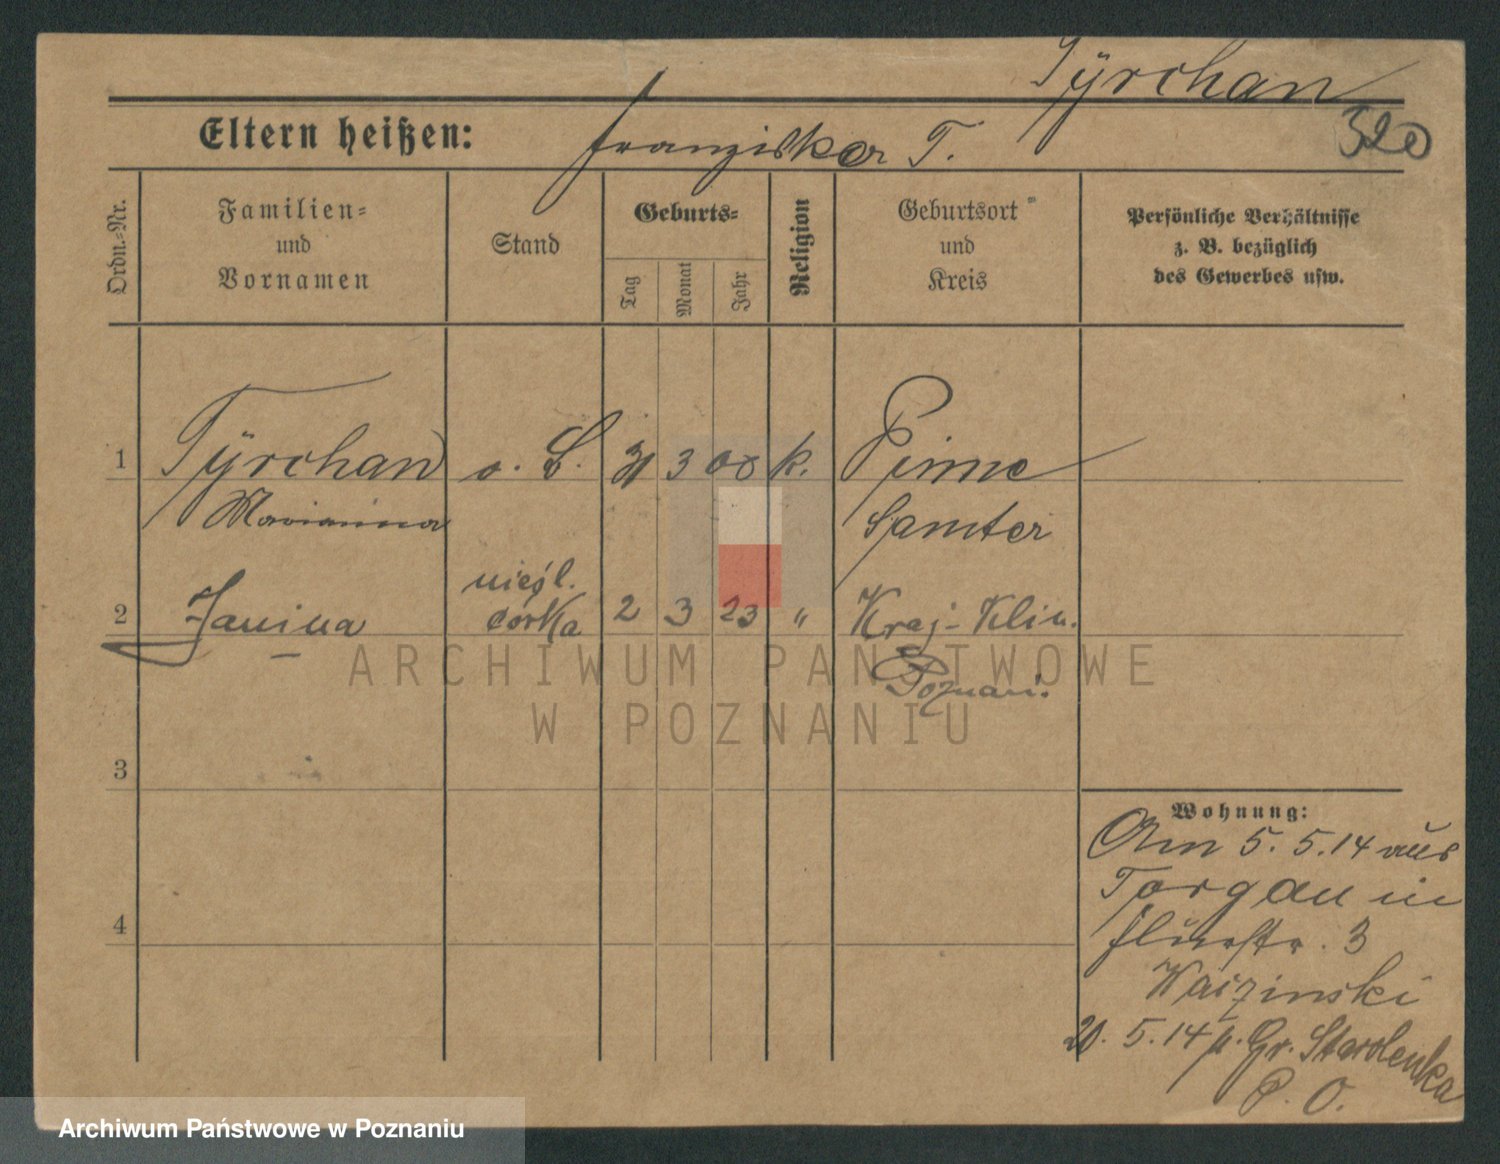 Tÿrchan
320
Eltern heißen: Franziska T.
Ordn.-Nr.
Familien-
und
Vornamen
Stand
Geburts-
Tag
Monat
Jahr
Religion
Geburtsort
und
Kreis
Persönliche Verhältnisse
z. B. bezüglich
des Gewerbes usw.
1 Tÿrchan o. B. 31 3 00 k. Pinne
Marianna Samter
nieśl.
2 Janina córka 2 3 23 " Kraj-Klin.
Poznań.
3
4
Wohnung:
Am 5. 5. 14 aus
Torgau in
Flurstr. 3
Kaizinski
20. 5. 14 n. Gr. Starolenka
P. O.
ARCHIWUM PAŃSTWOWE
W POZNANIU
Archiwum Państwowe w Poznaniu